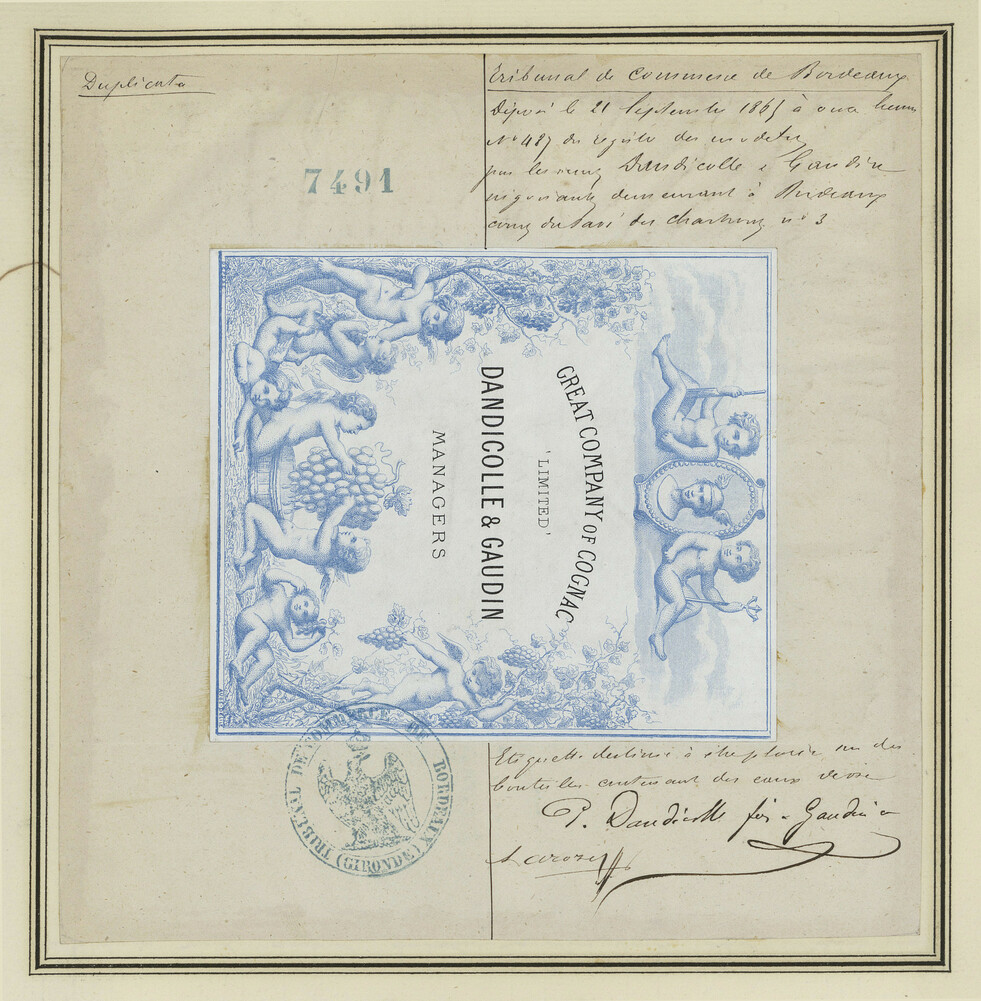 Duplicata
7491
Tribunal de commerce de Bordeaux
Déposé le 21 Septembre 1865 à onze heures
N° 487 du registre des modèles
par les sieurs Dandicolle & Gaudin
négociants demeurant à Bordeaux
cours du Pavé des Chartrons n° 3
GREAT COMPANY OF COGNAC
'LIMITED'
DANDICOLLE & GAUDIN
MANAGERS
Etiquette destinée à être placée sur des
bouteilles contenant des eaux de vie
P. Dandicolle fils & Gaudin
TRIBUNAL DE COMMERCE DE BORDEAUX
(GIRONDE)